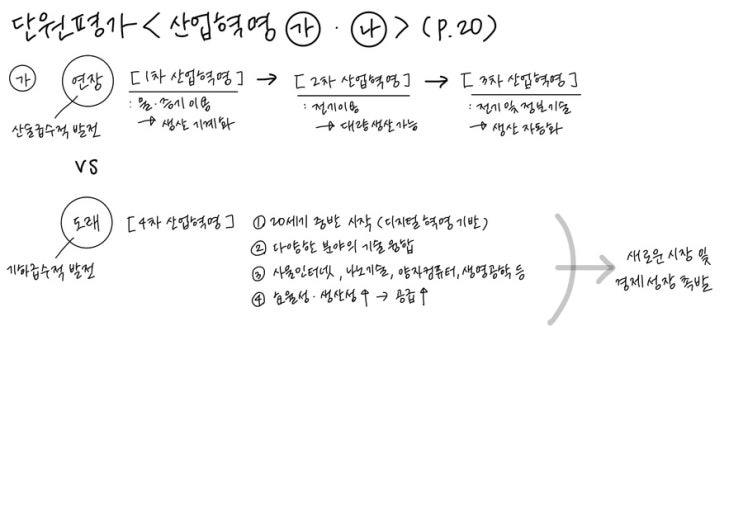 단원평가 < 산업혁명 ㉮ · ㉯ > (P.20)
㉮ 연장 [1차 산업혁명] → [2차 산업혁명] → [3차 산업혁명]
: 물·증기 이용 : 전기이용 : 전기 및 정보기술
산술급수적 발전 → 생산 기계화 → 대량생산가능 → 생산 자동화
VS
도래 [4차 산업혁명] ① 20세기 중반 시작 (디지털 혁명 기반)
② 다양한 분야의 기술 융합
기하급수적 발전 ③ 사물인터넷, 나노기술, 양자컴퓨터, 생명공학 등
④ 효율성·생산성↑ → 공급↑
새로운 시장 및
경제 성장 촉발